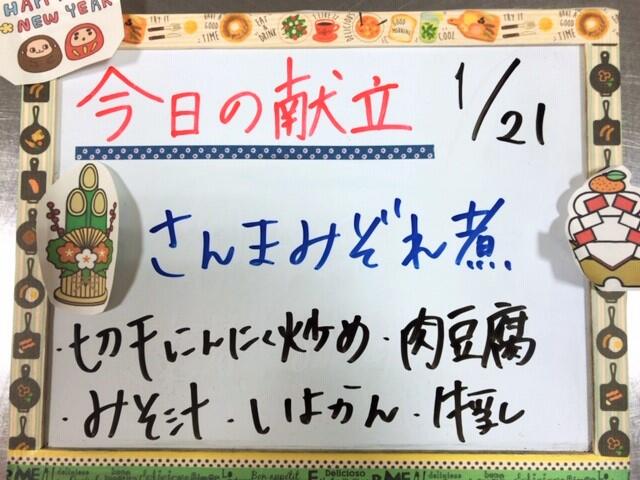 HAPPY NEW YEAR
今日の献立 1/21
さんまみぞれ煮
・切干にんにく炒め・肉豆腐
・みそ汁・しよかん・牛乳